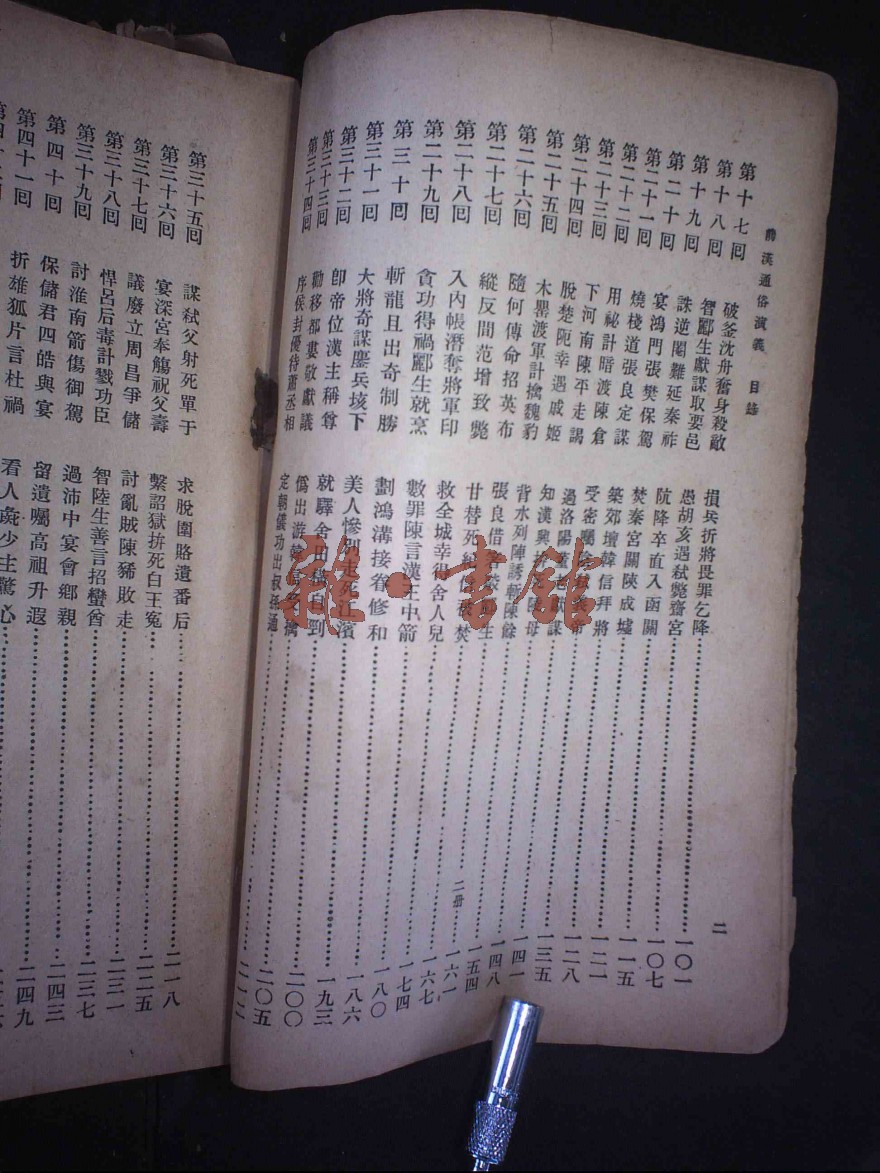 前漢通俗演義 目錄 二
第十七回 破釜沈舟奮身殺敵 損兵折將畏罪乞降……一〇一
第十八回 智酈生獻謀取要邑 愚胡亥遇弑斃齋宮……一〇七
第十九回 誅逆閹難延秦祚 阬降卒直入函關……一一五
第二十回 宴鴻門張樊保駕 焚秦宮關陳成墟……一二一
第二十一回 燒棧道張良定謀 築郊壇韓信拜將……一二八
第二十二回 用祕計暗渡陳倉 受密囑弑義帝……一三五
第二十三回 下河南陳平走謁 過洛陽董老獻謀……一四一
第二十四回 脫楚阨幸遇戚姬 知漢興拚死陵母……一四八
第二十五回 木罌渡軍計擒魏豹 背水列陣誘斬陳餘……一五四
第二十六回 隨何傳命招英布 張良借箸駁酈生……一六一
第二十七回 縱反間范增致斃 甘替死紀信被焚……一六七
二册
第二十八回 入內帳潛奪將軍印 救全城幸得舍人兒……一七四
第二十九回 貪功得禍酈生就烹 數罪陳言漢王中箭……一八〇
第三十回 斬龍且出奇制勝 劃鴻溝接眷修和……一八六
第三十一回 大將奇謀鏖兵垓下 美人慘別走死江濱……一九三
第三十二回 卽帝位漢主稱尊 就驛舍田橫自剄……二〇〇
第三十三回 勸移都婁敬獻議 僞出游韓信受擒……二〇五
第三十四回 序侯封優待蕭丞相 定朝儀功出叔孫通……二一二
第三十五回 謀弑父射死單于 求脫圍賂遺番后……二一八
第三十六回 宴深宮奉觴祝父壽 繫詔獄拚死白王冤……二二五
第三十七回 議廢立周昌爭儲 討亂賊陳豨敗走……二三一
第三十八回 悍呂后毒計戮功臣 智陸生善言招蠻酋……二三七
第三十九回 討淮南箭傷御駕 過沛中宴會鄉親……二四三
第四十回 保儲君四皓與宴 留遺囑高祖升遐……二四九
第四十一回 折雄狐片言杜禍 看人彘少主驚心
雜·書館